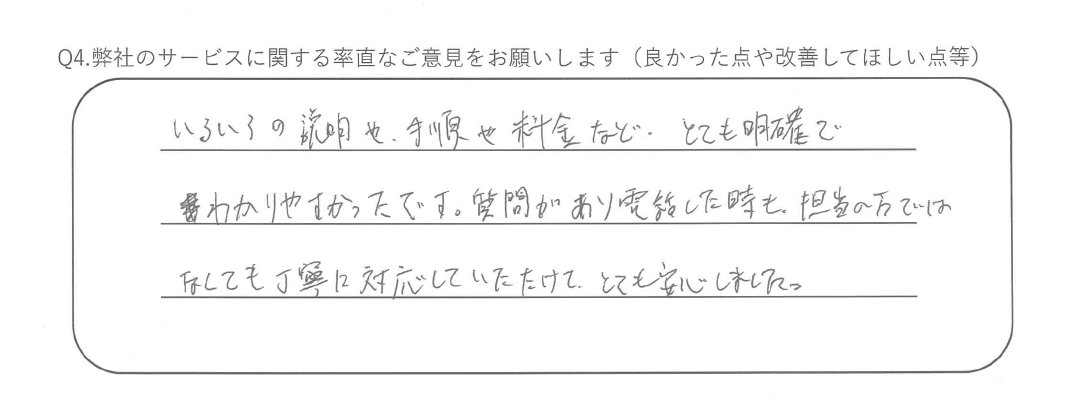 Q4.弊社のサービスに関する率直なご意見をお願いします（良かった点や改善してほしい点等）
いろいろの説明や、手順や料金など、とても明確で
わかりやすかったです。質問があり電話した時も、担当の方では
なしても丁寧に対応していただけて、とても安心しました。